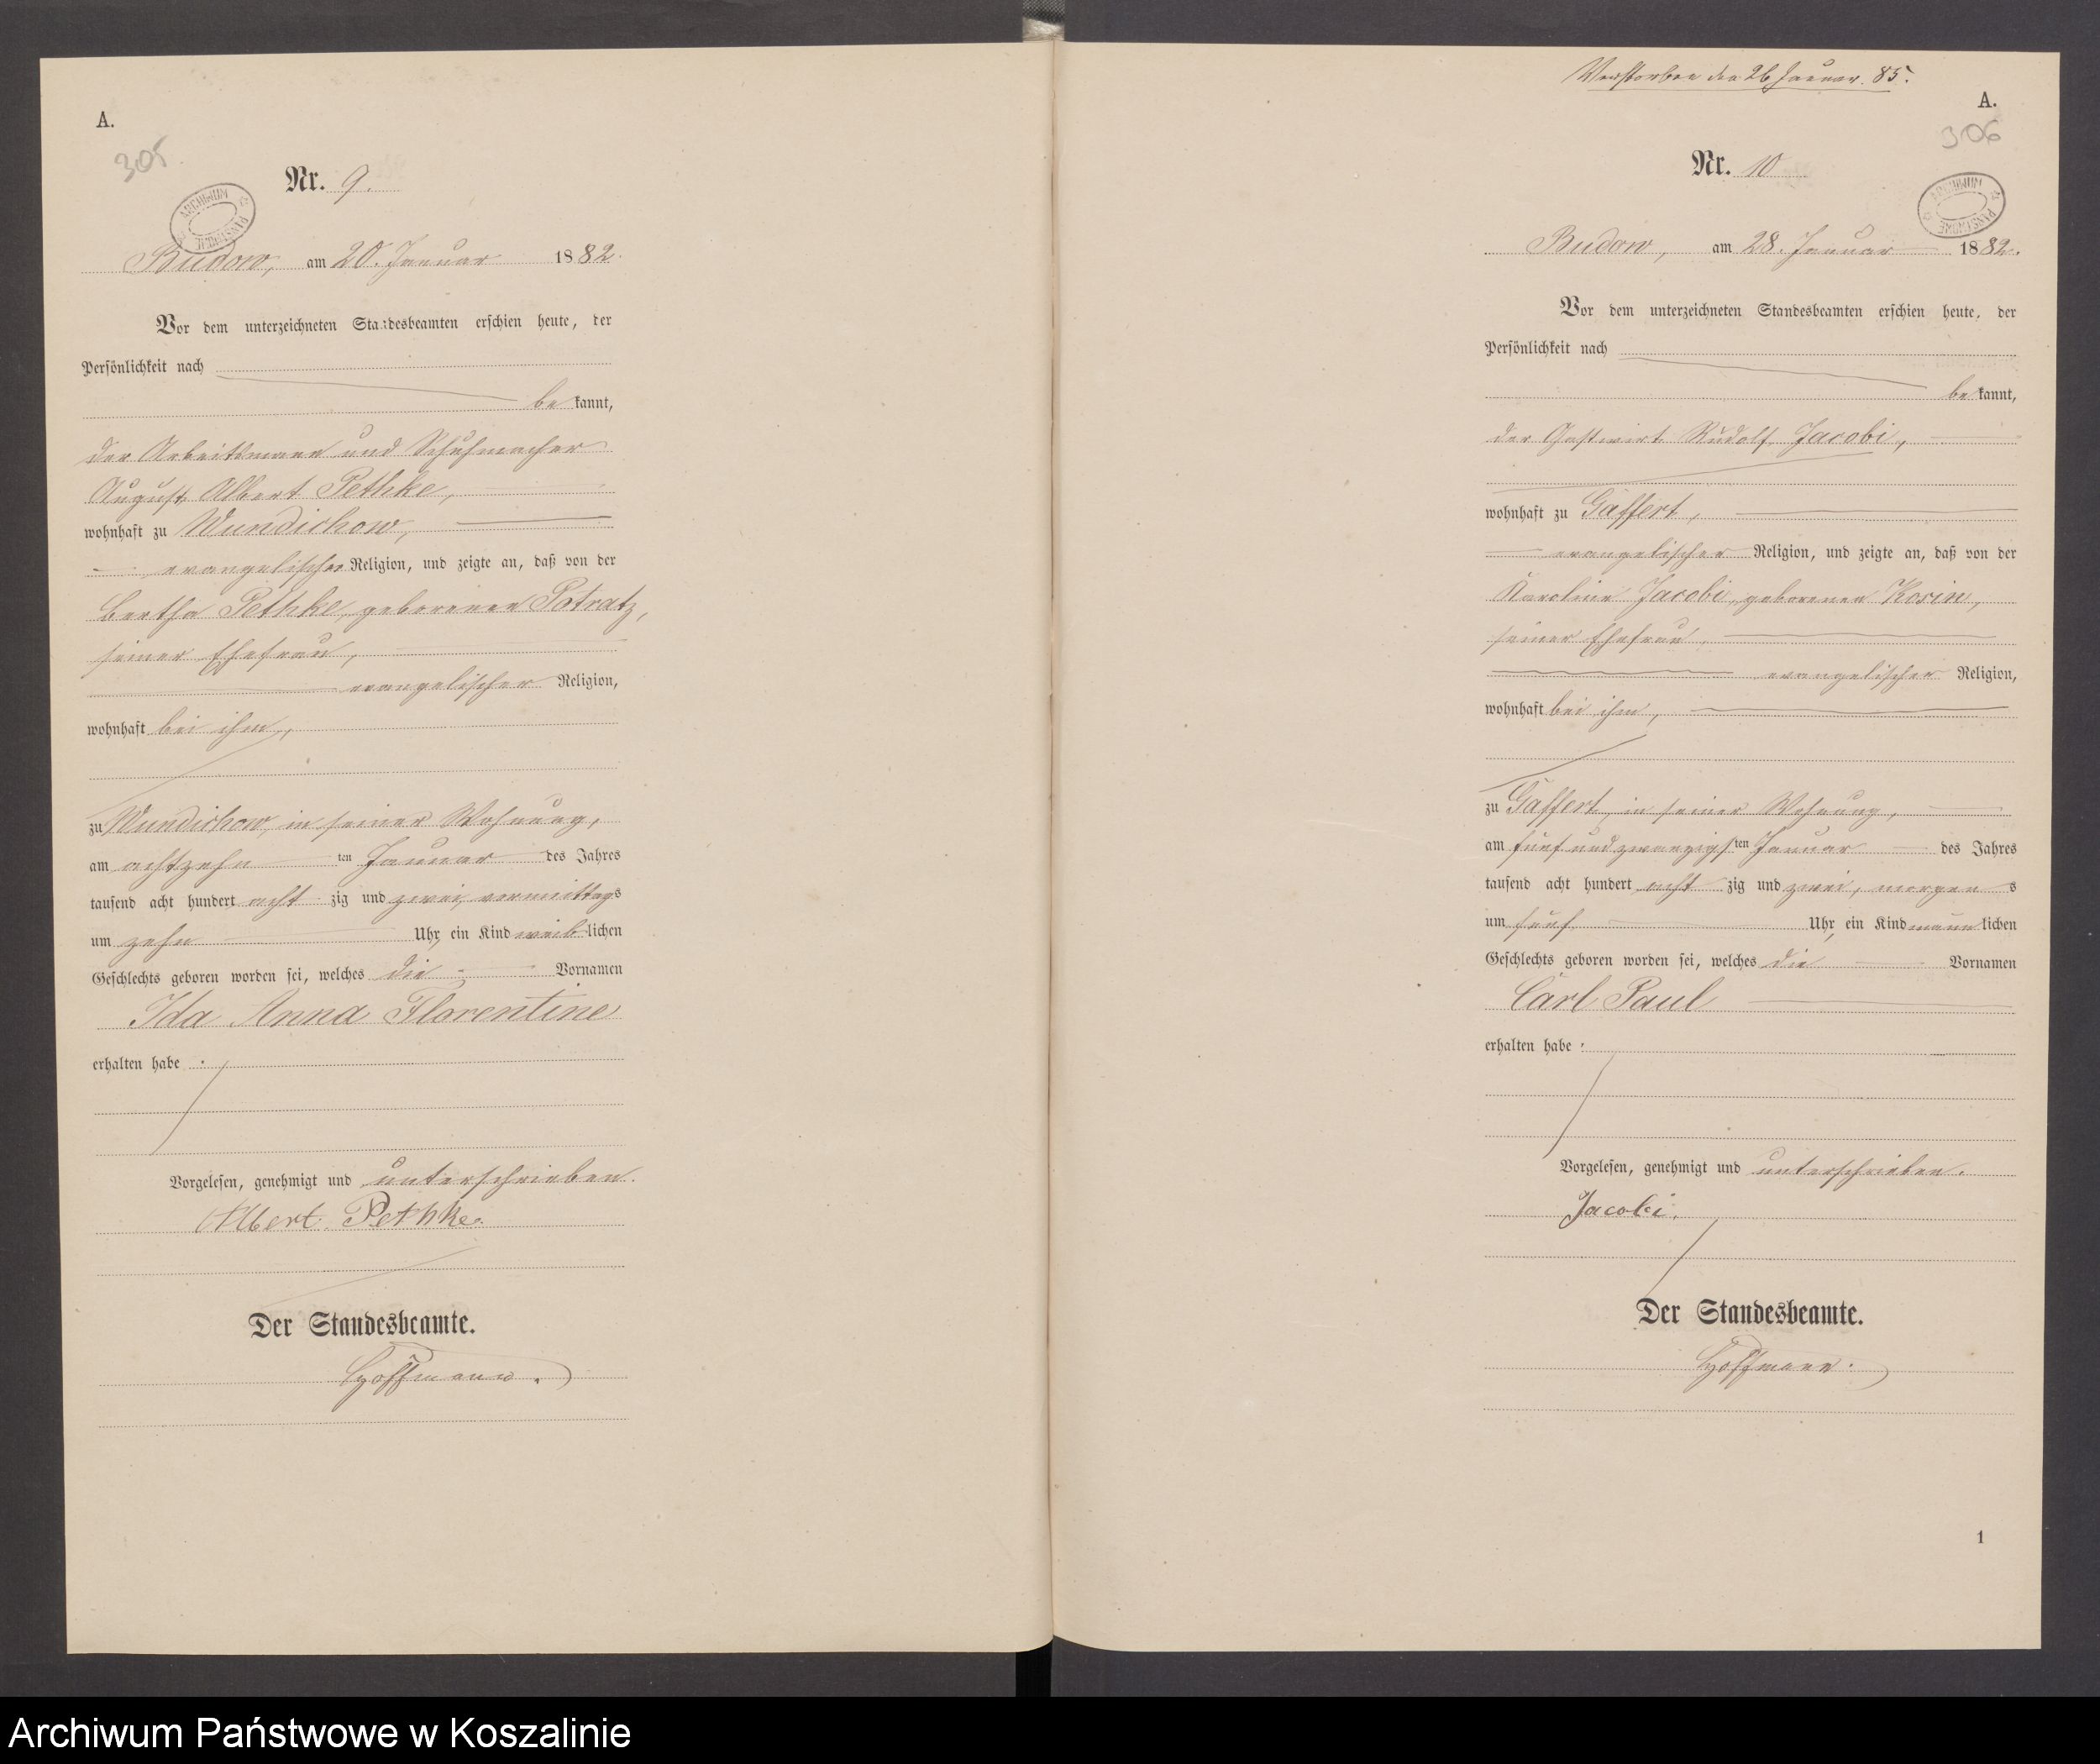 A.
305
Nr. 9.
ARCHIWUM PAŃSTWOWE
Budow, am 20. Januar 1882.
Vor dem unterzeichneten Standesbeamten erschien heute, der
Persönlichkeit nach
bekannt,
der Arbeitsmann und Schuhmacher
August Albert Pethke,
wohnhaft zu Wundichow,
evangelischer Religion, und zeigte an, daß von der
Bertha Pethke, geborenen Potratz,
seiner Ehefrau,
evangelischer Religion,
wohnhaft bei ihm,
zu Wundichow, in seiner Wohnung,
am achtzehn ten Januar des Jahres
tausend acht hundert acht zig und zwei, vormittags
um zehn Uhr, ein Kind weiblichen
Geschlechts geboren worden sei, welches die Vornamen
Ida Anna Florentine
erhalten habe.
Vorgelesen, genehmigt und unterschrieben.
Albert Pethke.
Der Standesbeamte.
Hoffmann.
Verstorben den 26 Januar. 85.
A.
306
Nr. 10
ARCHIWUM PAŃSTWOWE
Budow, am 28. Januar 1882.
Vor dem unterzeichneten Standesbeamten erschien heute, der
Persönlichkeit nach
bekannt,
der Gastwirt Rudolf Jacobi,
wohnhaft zu Gaffert,
evangelischer Religion, und zeigte an, daß von der
Karoline Jacobi, geborenen Kosin,
seiner Ehefrau,
evangelischer Religion,
wohnhaft bei ihm,
zu Gaffert, in seiner Wohnung,
am fünf und zwanzigsten Januar des Jahres
tausend acht hundert acht zig und zwei, morgens
um fünf Uhr, ein Kind männlichen
Geschlechts geboren worden sei, welches die Vornamen
Carl Paul
erhalten habe.
Vorgelesen, genehmigt und unterschrieben.
Jacobi.
Der Standesbeamte.
Hoffmann.
1
Archiwum Państwowe w Koszalinie